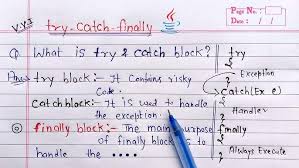 V.V.I
try-catch-finally
Java
Page No. :
Date : / /
Q. What is try & catch block?
Ans→ try block:- It contains risky
Code.
catch block:- It is used to handle
the exception.
◎ finally block:- The main purpose
of finally block is to
handle the ....
try
{
} Exception
catch(Ex e)
{
} Handler
finally
{
} Always Execute